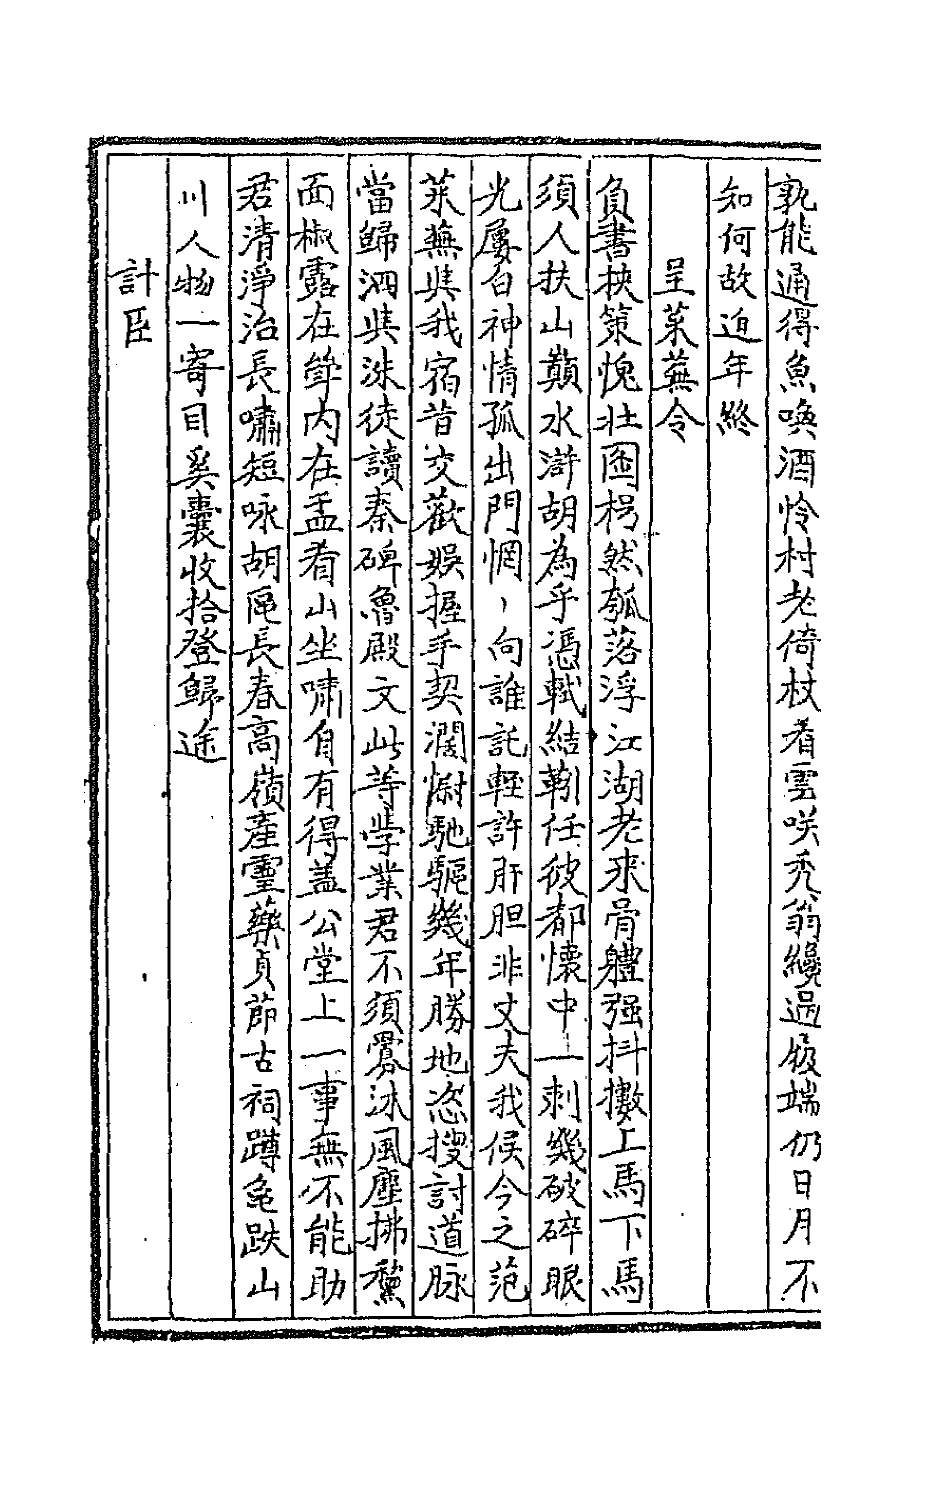 孰能通得魚喚酒怜村老倚杖看雲咲禿翁纔過履端仍日月不
知何故迫年終
呈萊蕪令
負書挾策愧壯圖枵然瓠落浮江湖老來骨體强抖擻上馬下馬
須人扶山巔水滸胡為乎憑軾結靷任彼都懷中一刺幾破碎眼
光屢白神情孤出門惘〻向誰託輕許肝胆非丈夫我候今之范
萊蕪與我宿昔交歡娛握手契濶慰馳驅幾年勝地恣搜討道脉
當歸泗與洙徒讀秦碑魯殿文此等學業君不須羃沐風塵拂黧
面椒露在聳內在盂看山坐嘯自有得蓋公堂上一事無不能助
君清淨治長嘯短咏胡 長春高嶺產靈藥貞節古祠蹲龜趺山
川人物一寄目奚囊收拾登歸途
計臣